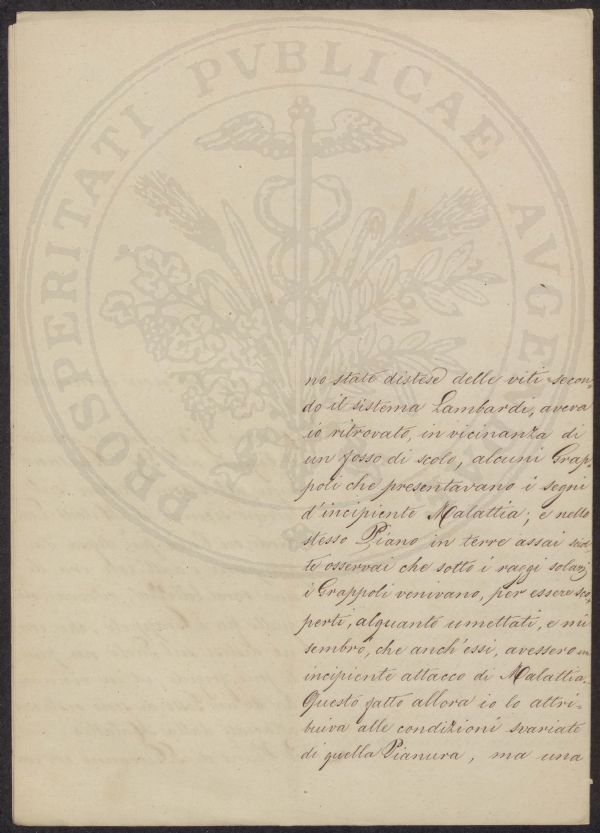 PROSPERITATI PVBLICAE AVGE
no state distese delle viti secon-
do il sistema Lambardi, aveva
io ritrovato, in vicinanza di
un fosso di scolo, alcuni Grap-
poli che presentavano i segni
d'incipiente Malattia; e nello
stesso Piano in terre assai
te osservai che sotto i raggi solari
i Grappoli venivano, per essere sco-
perti, alquanto umettati, e mi
sembrò, che anch'essi, avessero un
incipiente attacco di Malattia.
Questo fatto allora io lo attri-
buiva alle condizioni svariate
di quella Pianura, ma una